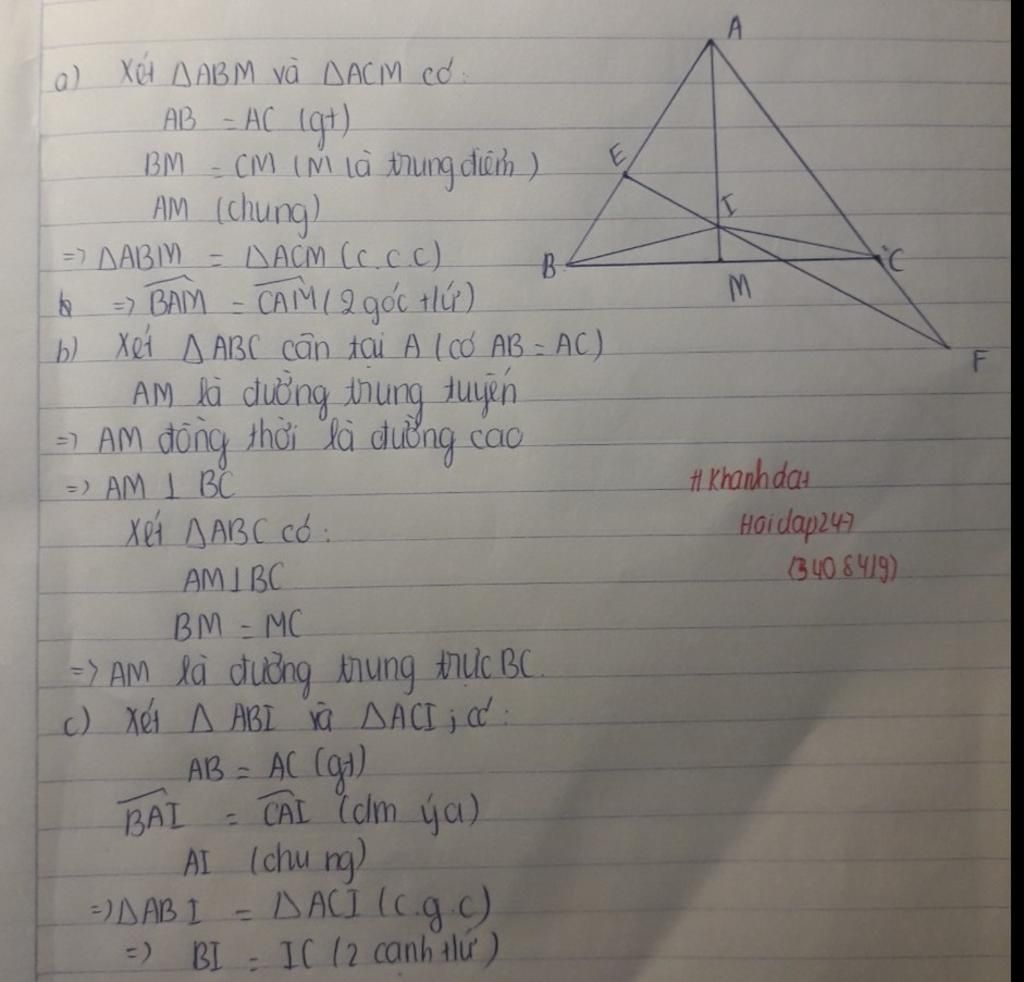 a) Xét ΔABM và ΔACM có:
AB = AC (gt)
BM = CM (M là trung điểm)
AM (chung)
=> ΔABM = ΔACM (c.c.c)
=> BAM = CAM (2 góc tứ)
b) Xét ΔABC cân tại A (có AB = AC)
AM là đường trung tuyến
=> AM đồng thời là đường cao
=> AM ⊥ BC
Xét ΔABC có:
AM ⊥ BC
BM = MC
=> AM là đường trung trực BC.
c) Xét ΔABI và ΔACI; có:
AB = AC (gt)
BAI = CAI (cm ý a)
AI (chung)
=> ΔABI = ΔACI (c.g.c)
=> BI = IC (2 cạnh tứ)
A
E
I
B
C
M
F
# Khanhdai
Hoidap247
(3408419)